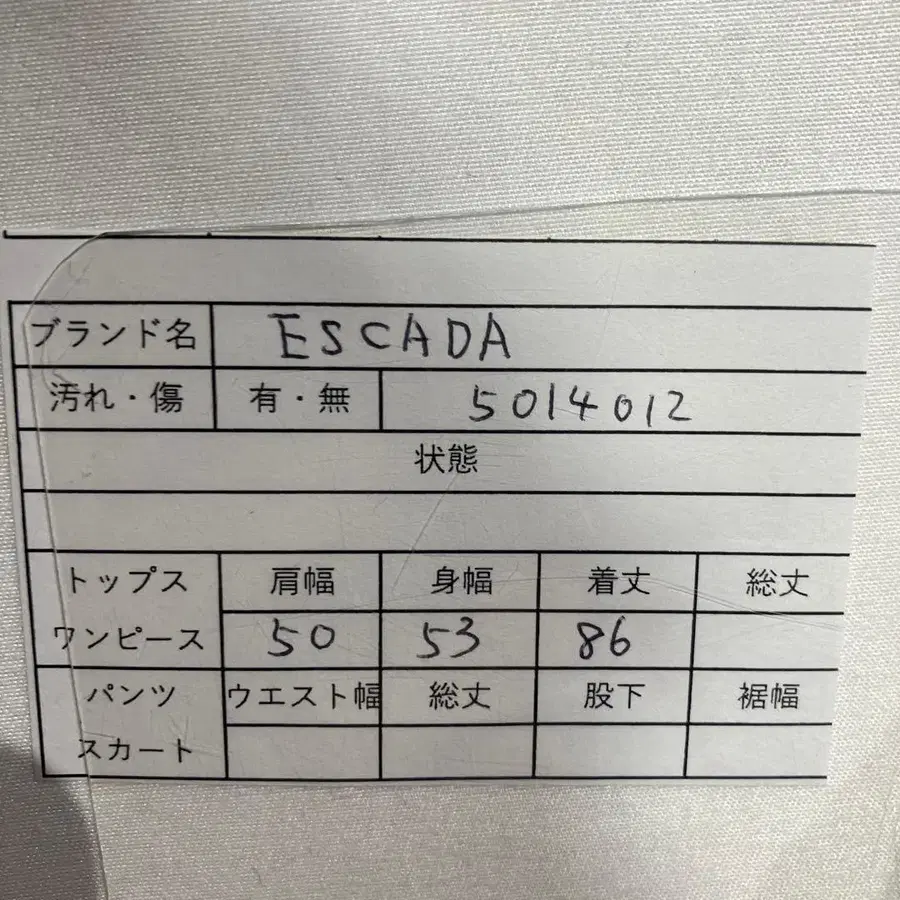 ブランド名 ESCADA
汚れ・傷 有・無 5014012
状態
トップス 肩幅 身幅 着丈 総丈
ワンピース 50 53 86
パンツ ウエスト幅 総丈 股下 裾幅
スカート